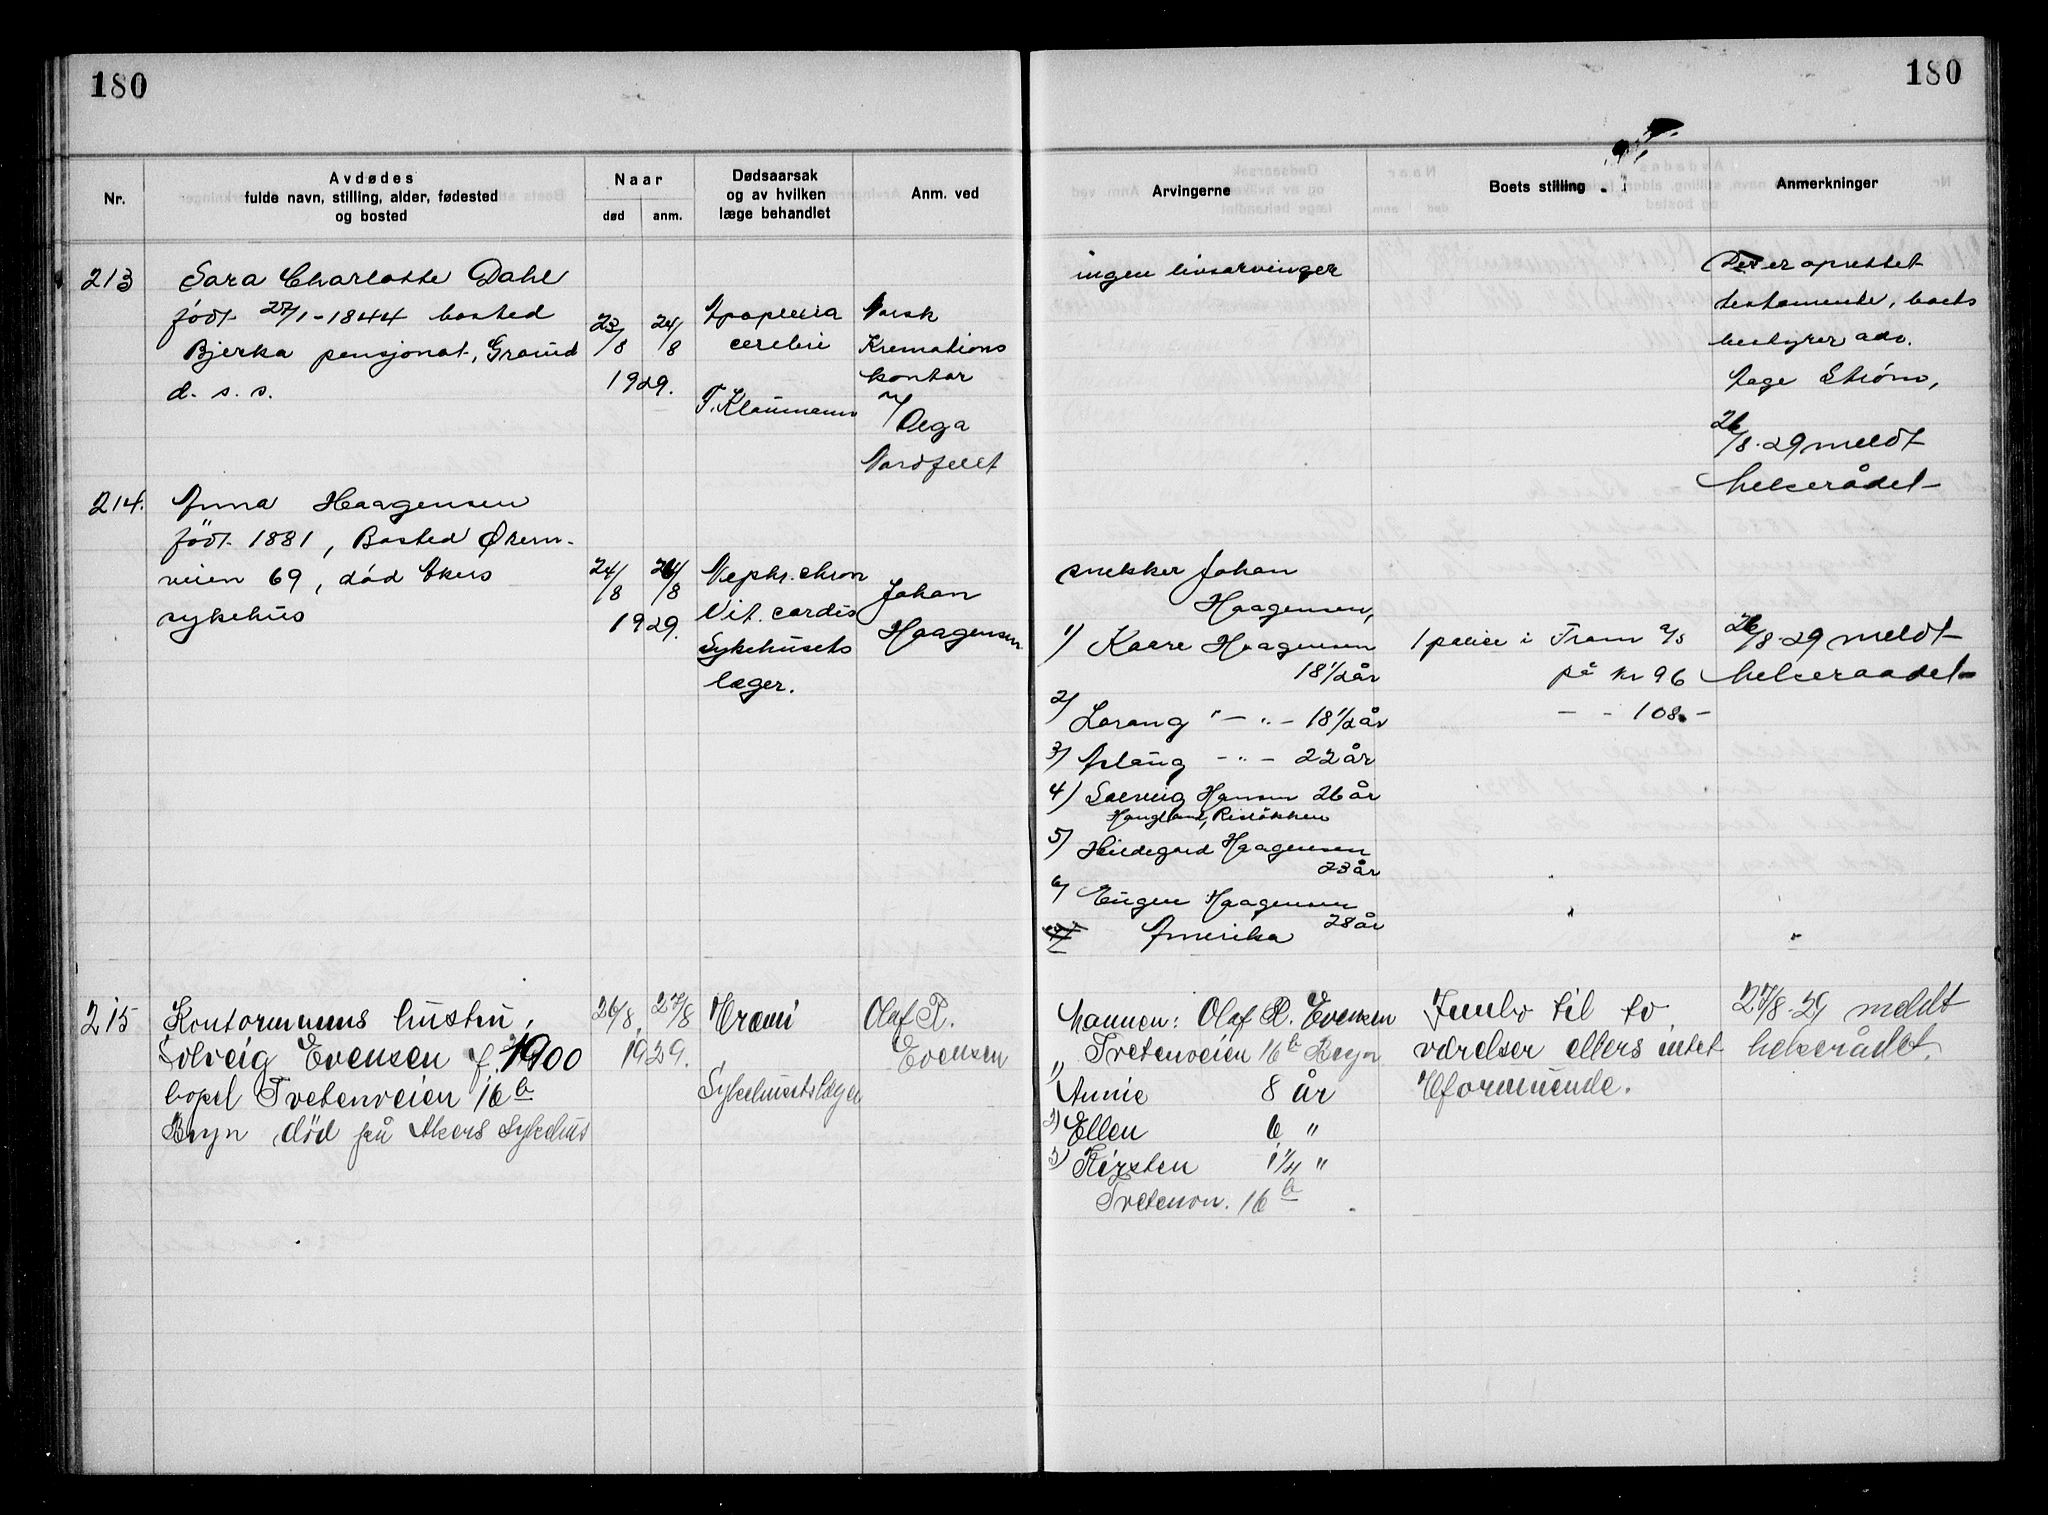 180
180
Nr.
Avdødes
fulde navn, stilling, alder, fødested
og bosted
Naar
død
anm.
Dødsaarsak
og av hvilken
læge behandlet
Anm. ved
Arvingerne
Boets stilling
Anmerkninger
213
Sara Charlotte Dahl
født 27/1-1844 bosted
Bjerka pensjonat, Grand
d. s. s.
23/8 24/8
1929.
Apoplexia
cerebri
T. Klaumann
Norsk
Kremations
kontor
v/ Olga
Nordfeldt
ingen livsarvinger
Der er oprettet
testamente, boets
bestyrer adv.
Aage Strøm,
26/8-29 meldt
helserådet
214.
Anna Haagensen
født 1881, Bosted Økern-
veien 69, død Akers
sykehus
24/8 26/8
1929.
Nephr. chron
Vit. cordis
Sykehusets
læger.
Johan
Haagensen
snekker Johan
Haagensen,
1) Kaare Haagensen
18 1/2 år
2) Lorang " — " — 18 1/2 år
3) Aslaug — " — 22 år
4) Solveig Hansen 26 år
Haugland, Risløkken
5) Hildegard Haagensen
23 år
6) Eugen Haagensen
28 år
Amerika
1 police i Fram a/s
på kr 96
— - 108.-
26/8-29 meldt
helseraadet
215
Kontormanns hustru,
Solveig Evensen f. 1900
bopel Tvetenveien 16 b
Bryn død på Akers Sykehus
26/8, 27/8
1929.
Uræmi
Sykehusets læger
Olaf R.
Evensen
Mannen: Olaf R. Evensen
Tvetenveien 16 b Bryn
1) Annie 8 år
2) Ellen 6 "
3) Kirsten 1 1/4 "
Tvetenvn. 16 b
Innbo til to
værelser ellers intet
Uformuende.
27/8-29 meldt
helserådet.